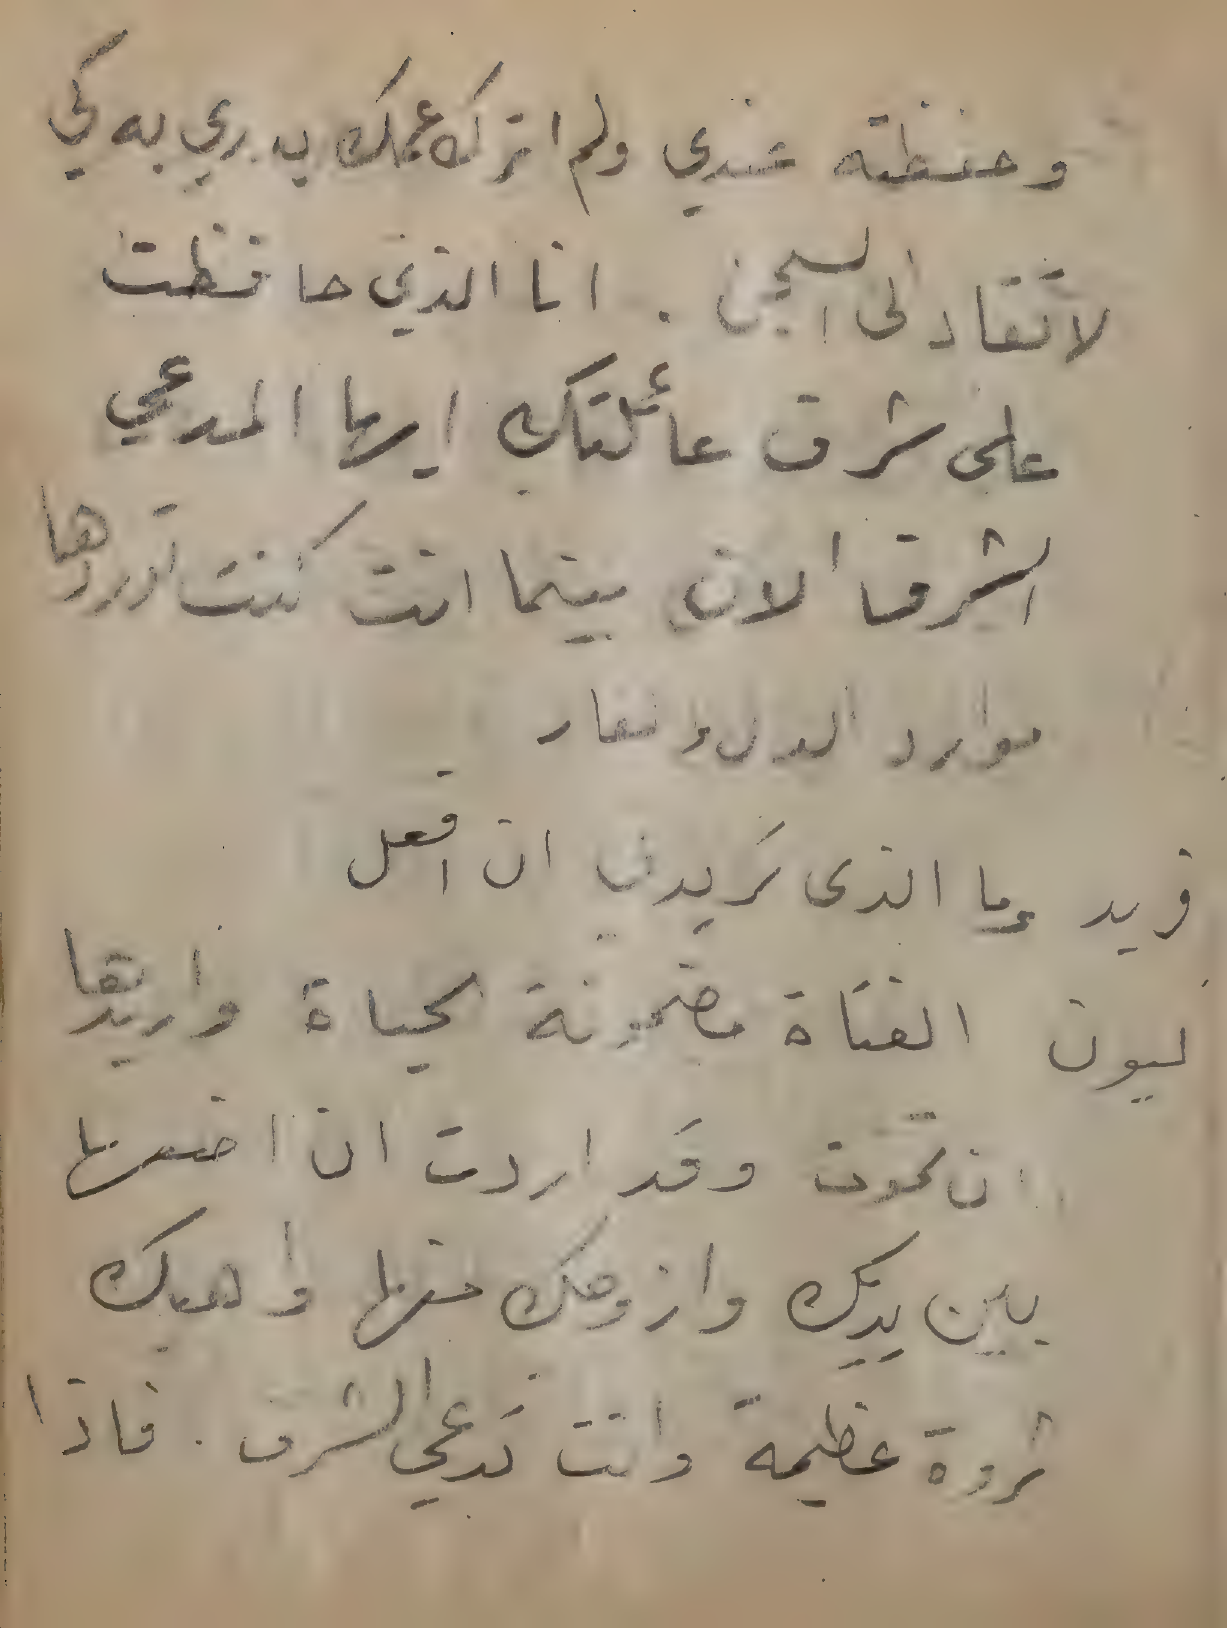 وحفظته عندي ولم اترك عمك يدري به كي
لا تقاد الى السجن . انا الذي حافظت
على شرف عائلتك ايها المدعي
الشرف الان بينما انت كنت توردها
موارد الذل
فريد وما الذي تريدني ان افعل
ليون الفتاة مضمونة الحياة واريدها
ان تموت وقد اردت ان اضعها
بين يديك وازوجك منها واهبك
ثروة عظيمة وانت تدعي الشرف . فاذا